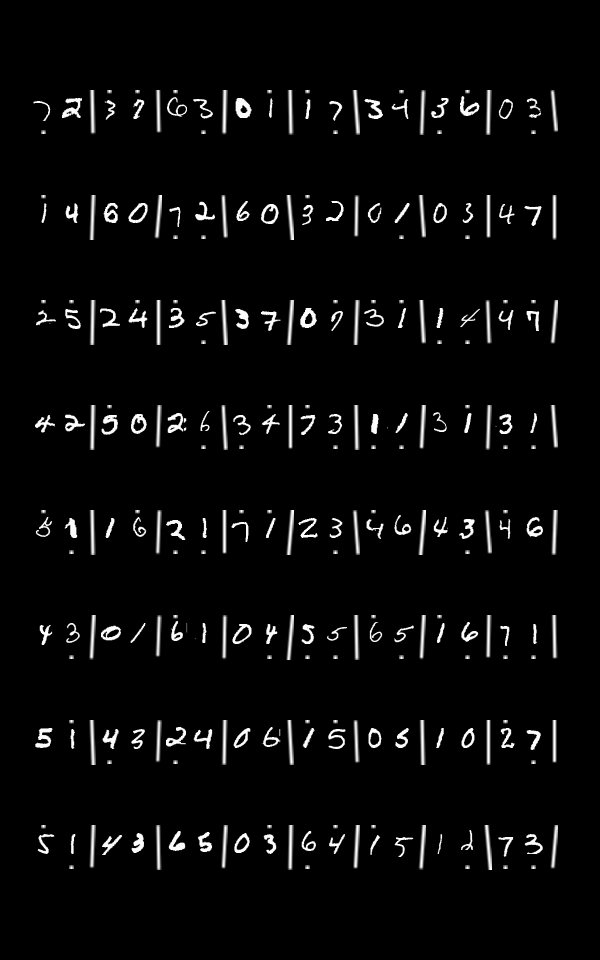 7 2 | 3 7 | 6 3 | 0 1 | 1 7 | 3 4 | 3 6 | 0 3 |
1 4 | 6 0 | 7 2 | 6 0 | 3 2 | 0 1 | 0 3 | 4 7 |
2 5 | 2 4 | 3 5 | 3 7 | 0 7 | 3 1 | 1 4 | 4 7 |
4 2 | 5 0 | 2 6 | 3 4 | 7 3 | 1 1 | 3 1 | 3 1 |
5 1 | 1 6 | 2 1 | 7 1 | 2 3 | 4 6 | 4 3 | 4 6 |
4 3 | 0 1 | 6 1 | 0 4 | 5 5 | 6 5 | 1 6 | 7 1 |
5 1 | 4 3 | 2 4 | 0 6 | 1 5 | 0 5 | 1 0 | 2 7 |
5 1 | 4 3 | 6 5 | 0 3 | 6 4 | 1 5 | 1 2 | 7 3 |